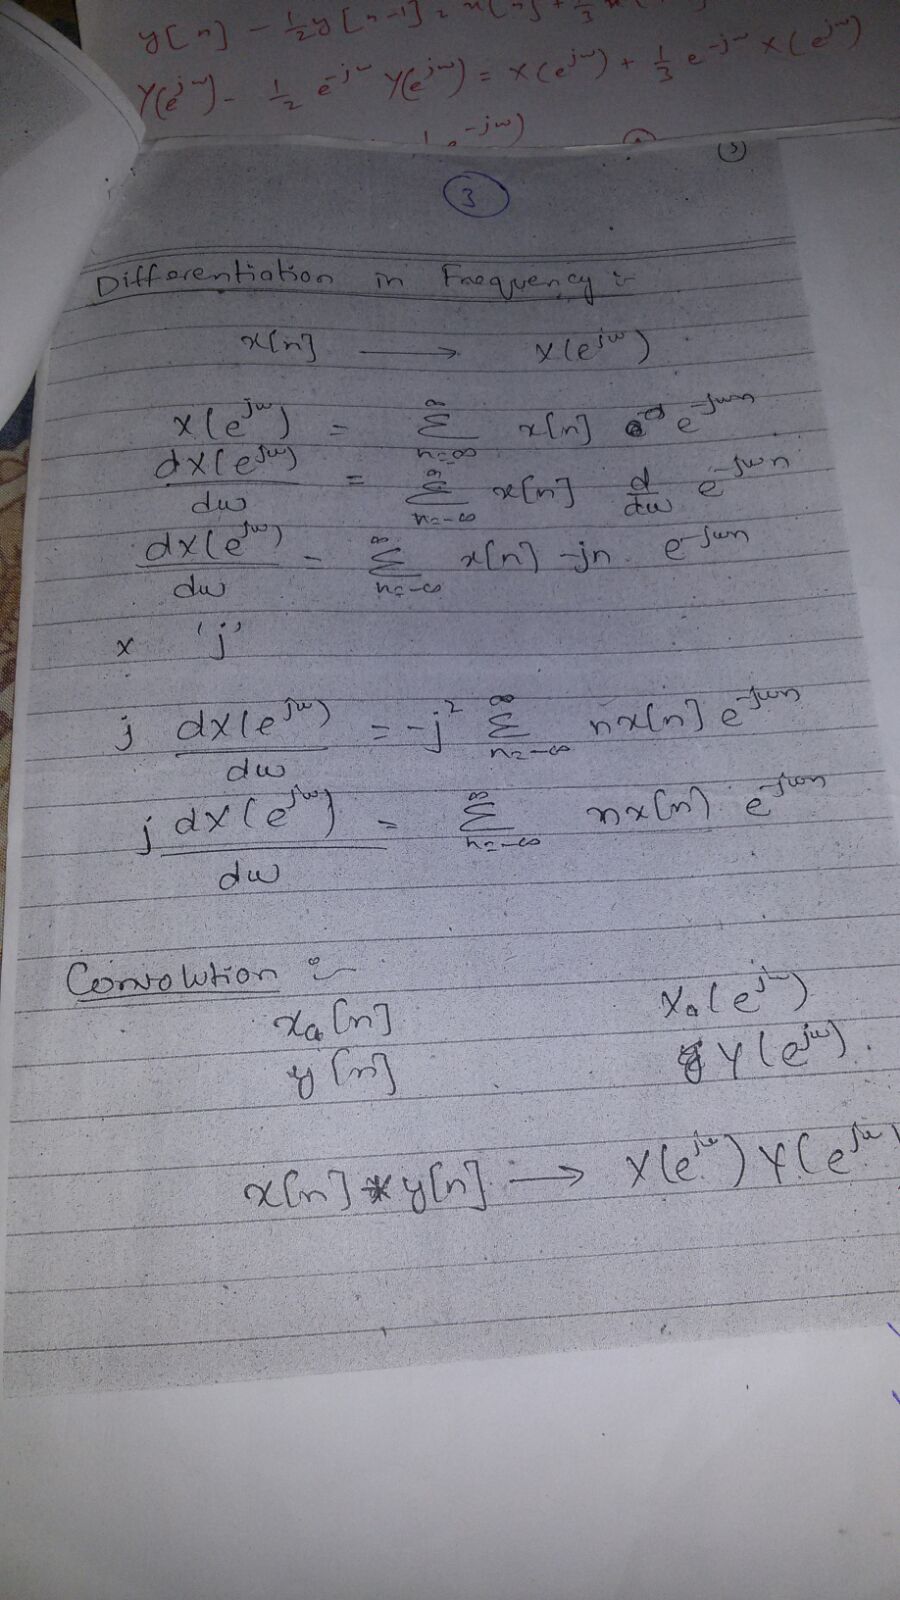 y[n] - 1/2 y[n-1] = x[n] + 1/3 x
Y(e^jω) - 1/2 e^-jω Y(e^jω) = X(e^jω) + 1/3 e^-jω X(e^jω)
e^-jω)
(3)
3
Differentiation in Frequency :-
x[n] → X(e^jω)
X(e^jω) = ∑_{n=-∞}^{∞} x[n] e^-jωn
dX(e^jω)/dω = ∑_{n=-∞}^{∞} x[n] d/dω e^-jωn
dX(e^jω)/dω = ∑_{n=-∞}^{∞} x[n] -jn e^-jωn
x 'j'
j dX(e^jω)/dω = -j² ∑_{n=-∞}^{∞} nx[n] e^-jωn
j dX(e^jω)/dω = ∑_{n=-∞}^{∞} nx[n] e^-jωn
Convolution :-
xa[n] Xa(e^jω)
y[n] Y(e^jω).
x[n] * y[n] → X(e^jω) Y(e^jω